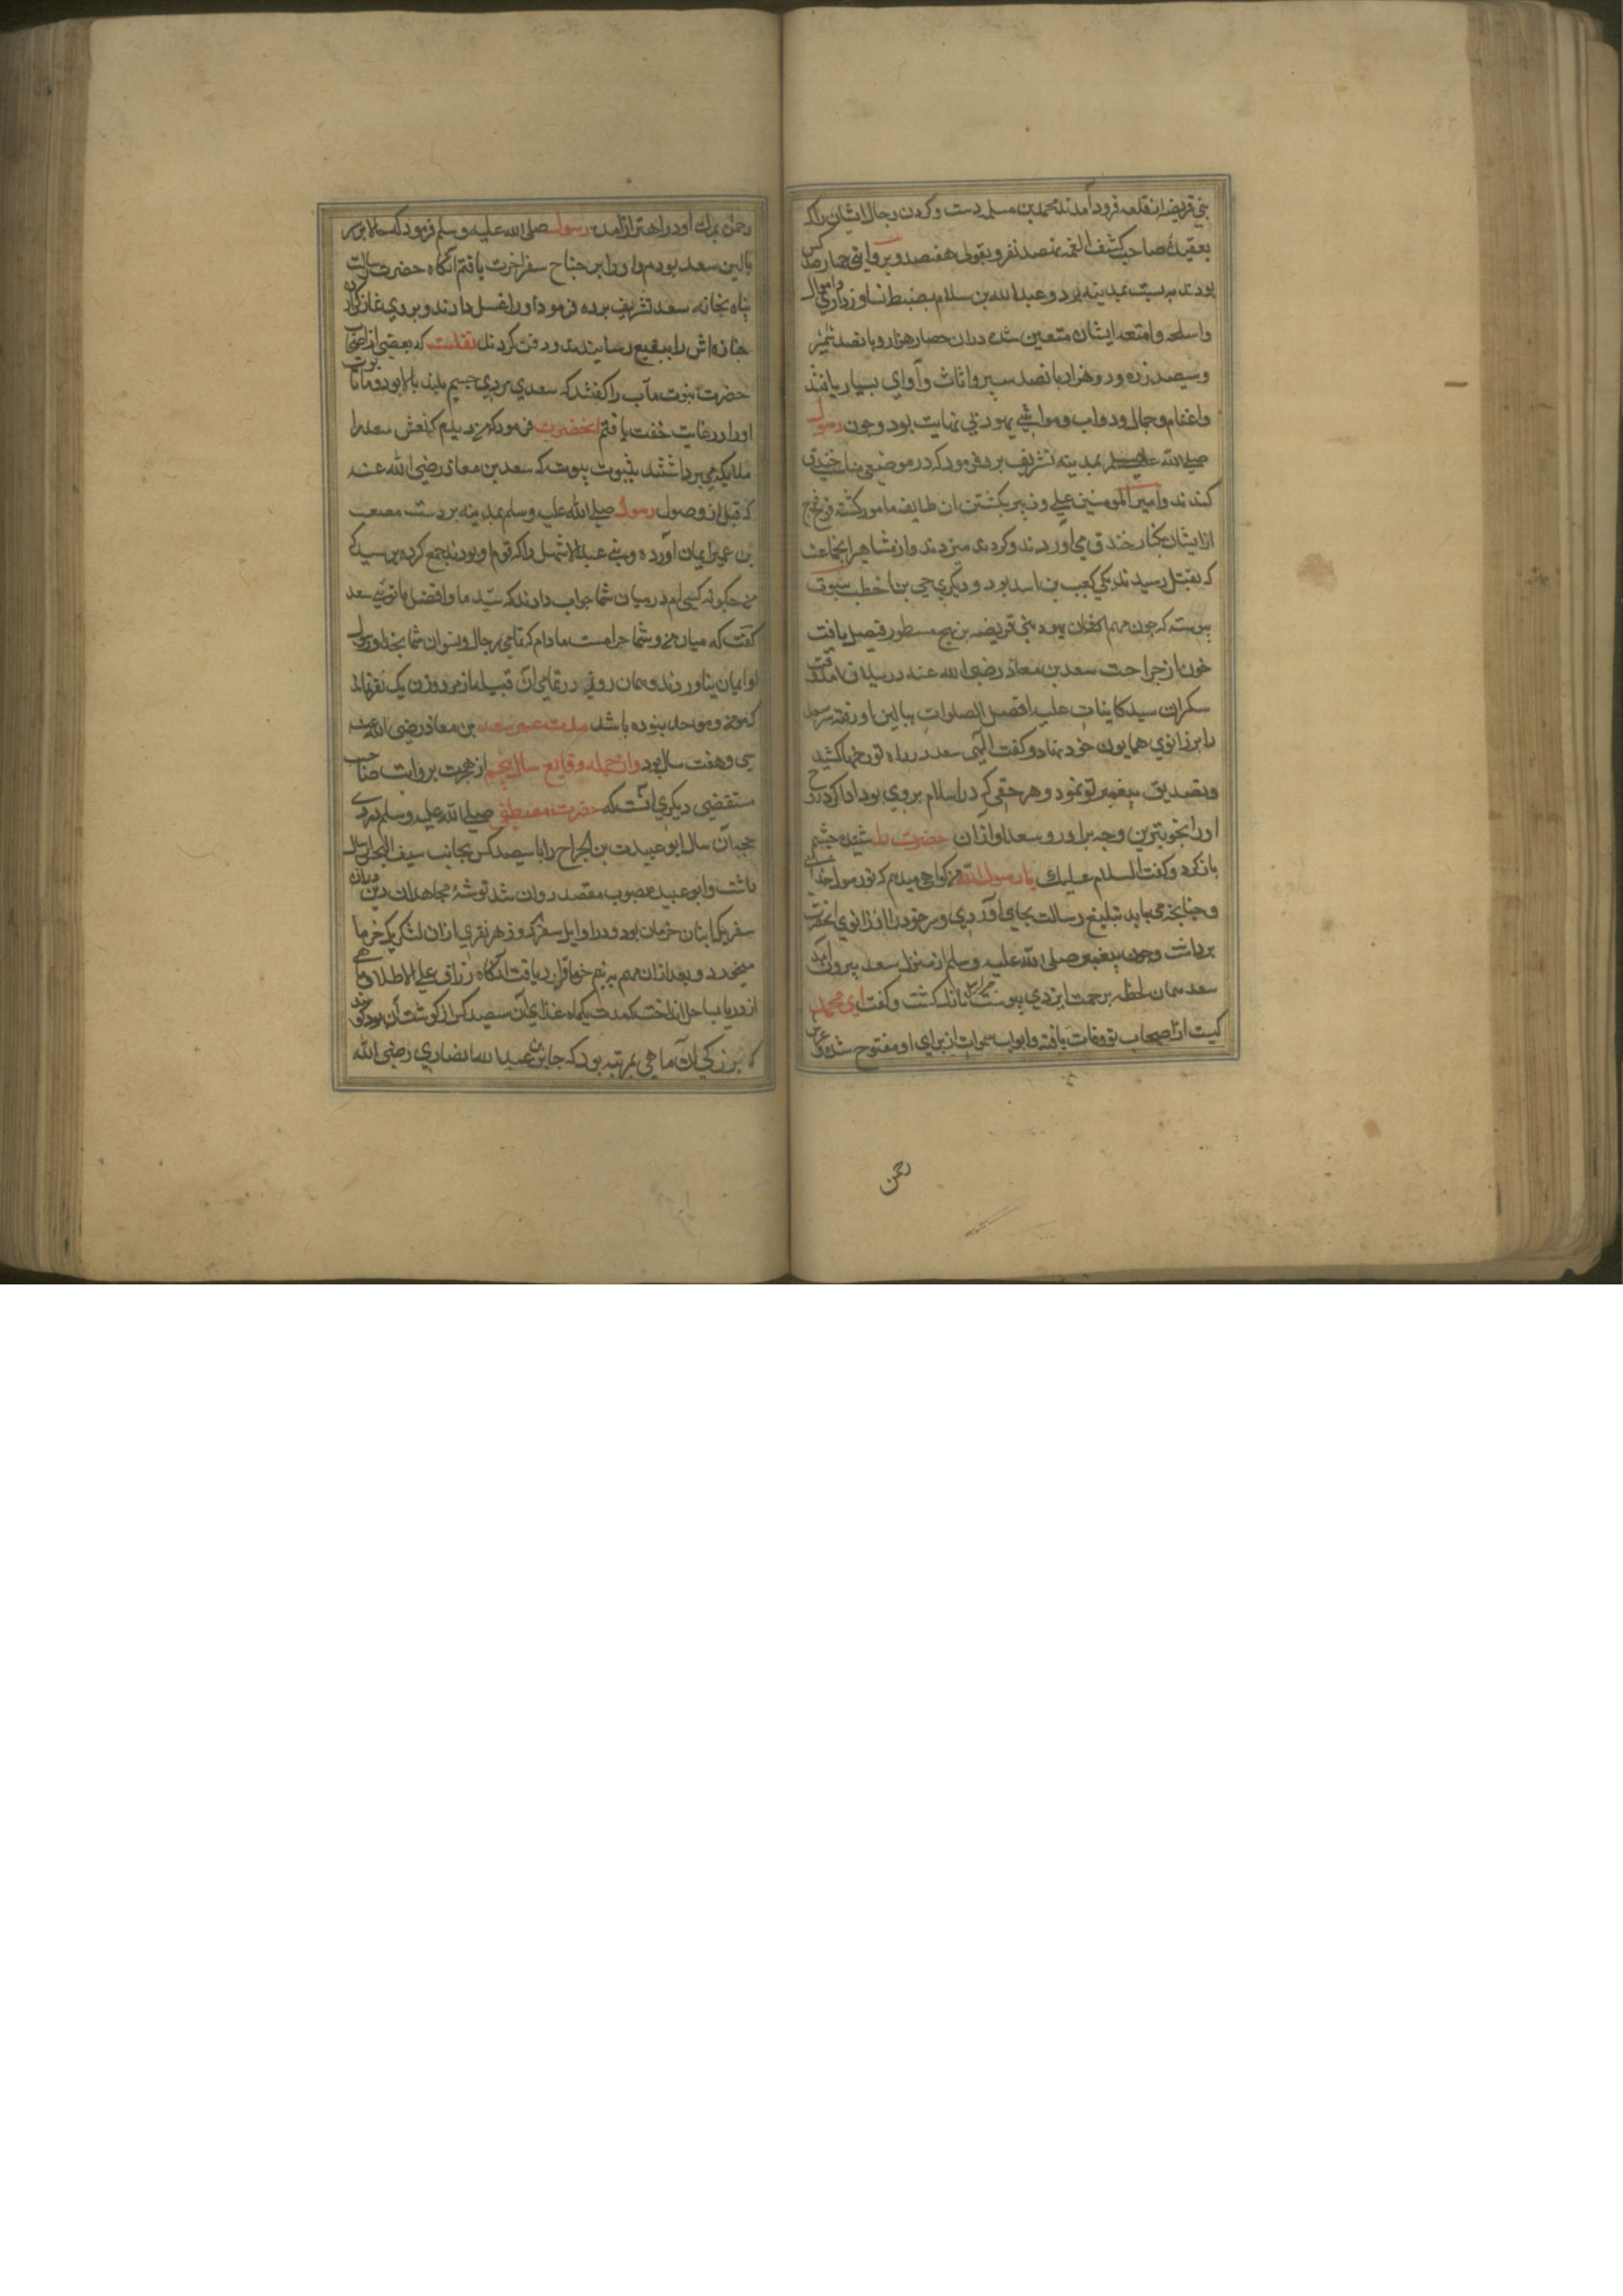 بنی قریضه از قلعه فرود آمدند محمد بن مسلمه دست و کردن رجال ایشان را که
بعقیدهٔ صاحب کشف الغمه نهصد نفر و بقولی هفتصد و بروایتی چهارصد کس
بودند بربست بمدینه برد و عبدالله بن سلام بضبط نسا و ذراری و اموال
و اسلحه و امتعه ایشان متعین شده دران حصار هزار و پانصد شمشیر
و سیصد زره و دو هزار پانصد سپر و اثاث و آوای بسیار یافتند
و اغنام و جمال و دواب و مواشی یهود بی نهایت بود و چون رسول
صلی الله علیه وسلم بمدینه تشریف برد فرمود که در موضعی مناسب خندق
کندند و امیر المومنین علی و زبیر بکشتن ان طایفه مامور کشته فوج فوج
از ایشان بکنار خندق می اوردند و کردن میزدند و از مشاهیر انجماعت
که بقتل رسیدند یکی کعب بن اسد بود و دیکری حی بن اخطب بثبوت
پیوسته که چون مهم یهود بنی قریضه برین نهج مسطور فیصل یافت
خون از جراحت سعد بن معاذ رضی الله عنه در سیلان امد وقت
سکران سید کاینات علیه افضل الصلوات ببالین او رفته سر سعد
را بر زانوی همایون خود نهاد و کفت الهی سعد در راه تو رنجها کشید
و تصدیق پیغمبر تو نمود و هر حقی که در اسلام بروی بود ادا کرد روح
او را بخوبترین وجه براور و سعد اواز ان حضرت را شنیده چشم
باز کرد و کفت السلام علیک یا رسول الله من کواهی میدهم که تو رسول خدای
و چنانچه می باید تبلیغ رسالت بجای آوردی و سر خود را از زانوی انحضرت
برداشت و چون پیغمبر صلی الله علیه وسلم از منزل سعد بیرون آمد
سعد همان لحظه برحمت ایزدی پیوست جبرائیل نازل کشت و کفت ای محمد
کیست از اصحاب تو وفات یافته و ابواب سموات از برای او مفتوح شده و عرش
رحمن
رحمن برای او در اهتزاز آمد رسول صلی الله علیه وسلم فرمود که حالا بر سر
بالین سعد بودم و او را بر جناح سفر اخرت یافتم انکاه حضرت رسالت
پناه بخانه سعد تشریف برده فرمود او را غسل دادند و بروی نماز کزارده
جنازه اش را ببقیع رسانیدند و دفن کردند نقلست که بعضی از اصحاب
حضرت نبوت مآب را کفتند که سعد مردی جسیم بلند بالا بود و ما تابوت
او را در غایت خفت یافتم انحضرت فرمود که من دیدم که نعش سعد را
ملایکه می برداشتند بثبوت پیوست که سعد بن معاذ رضی الله عنه
که قبل از وصول رسول صلی الله علیه وسلم بمدینه بر دست مصعب
بن عمیر ایمان آورده و بنی عبد الاشهل را که قوم او بودند جمع کرده پرسید که
من چکونه کسی ام در میان شما جواب دادند که سید ما و افضل ما توئی سعد
کفت که میان من و شما حرامست مادام که تمامی رجال و نسوان شما بخدا و رسول
او ایمان بیاورند و همان روز در تمامی آن قبیله از مرد و زن یک نفر نماند
که مومن و موحد نبوده باشد مدت عمر سعد بن معاذ رضی الله عنه
سی و هفت سال بود و از جمله وقایع سال پنجم از هجرت بروایت صاحب
مستقضی دیکری آنست که حضرت مصطفی صلی الله علیه وسلم در ذی
حجه آن سال ابو عبیدة بن الجراح را با سیصد کس بجانب سیف البحر ارسال
داشت و ابو عبیده بصوب مقصد روان شد توشهٔ مجاهدان دین دران
سفر یک انبان خرمان بود و در اوایل سفر هر روز هر نفری ازان لشکر یک خرما
میخورد و بعد ازان مهم به نیم خرما قرار یافت انکاه رزاق علی الاطلاق ماهی
از دریا بساحل انداخت که مدت یکماه غذای آن سیصد کس از کوشت آن بود
بزرکی ان ماهی بمرتبه بود که جابر بن عبدالله انصاری رضی الله